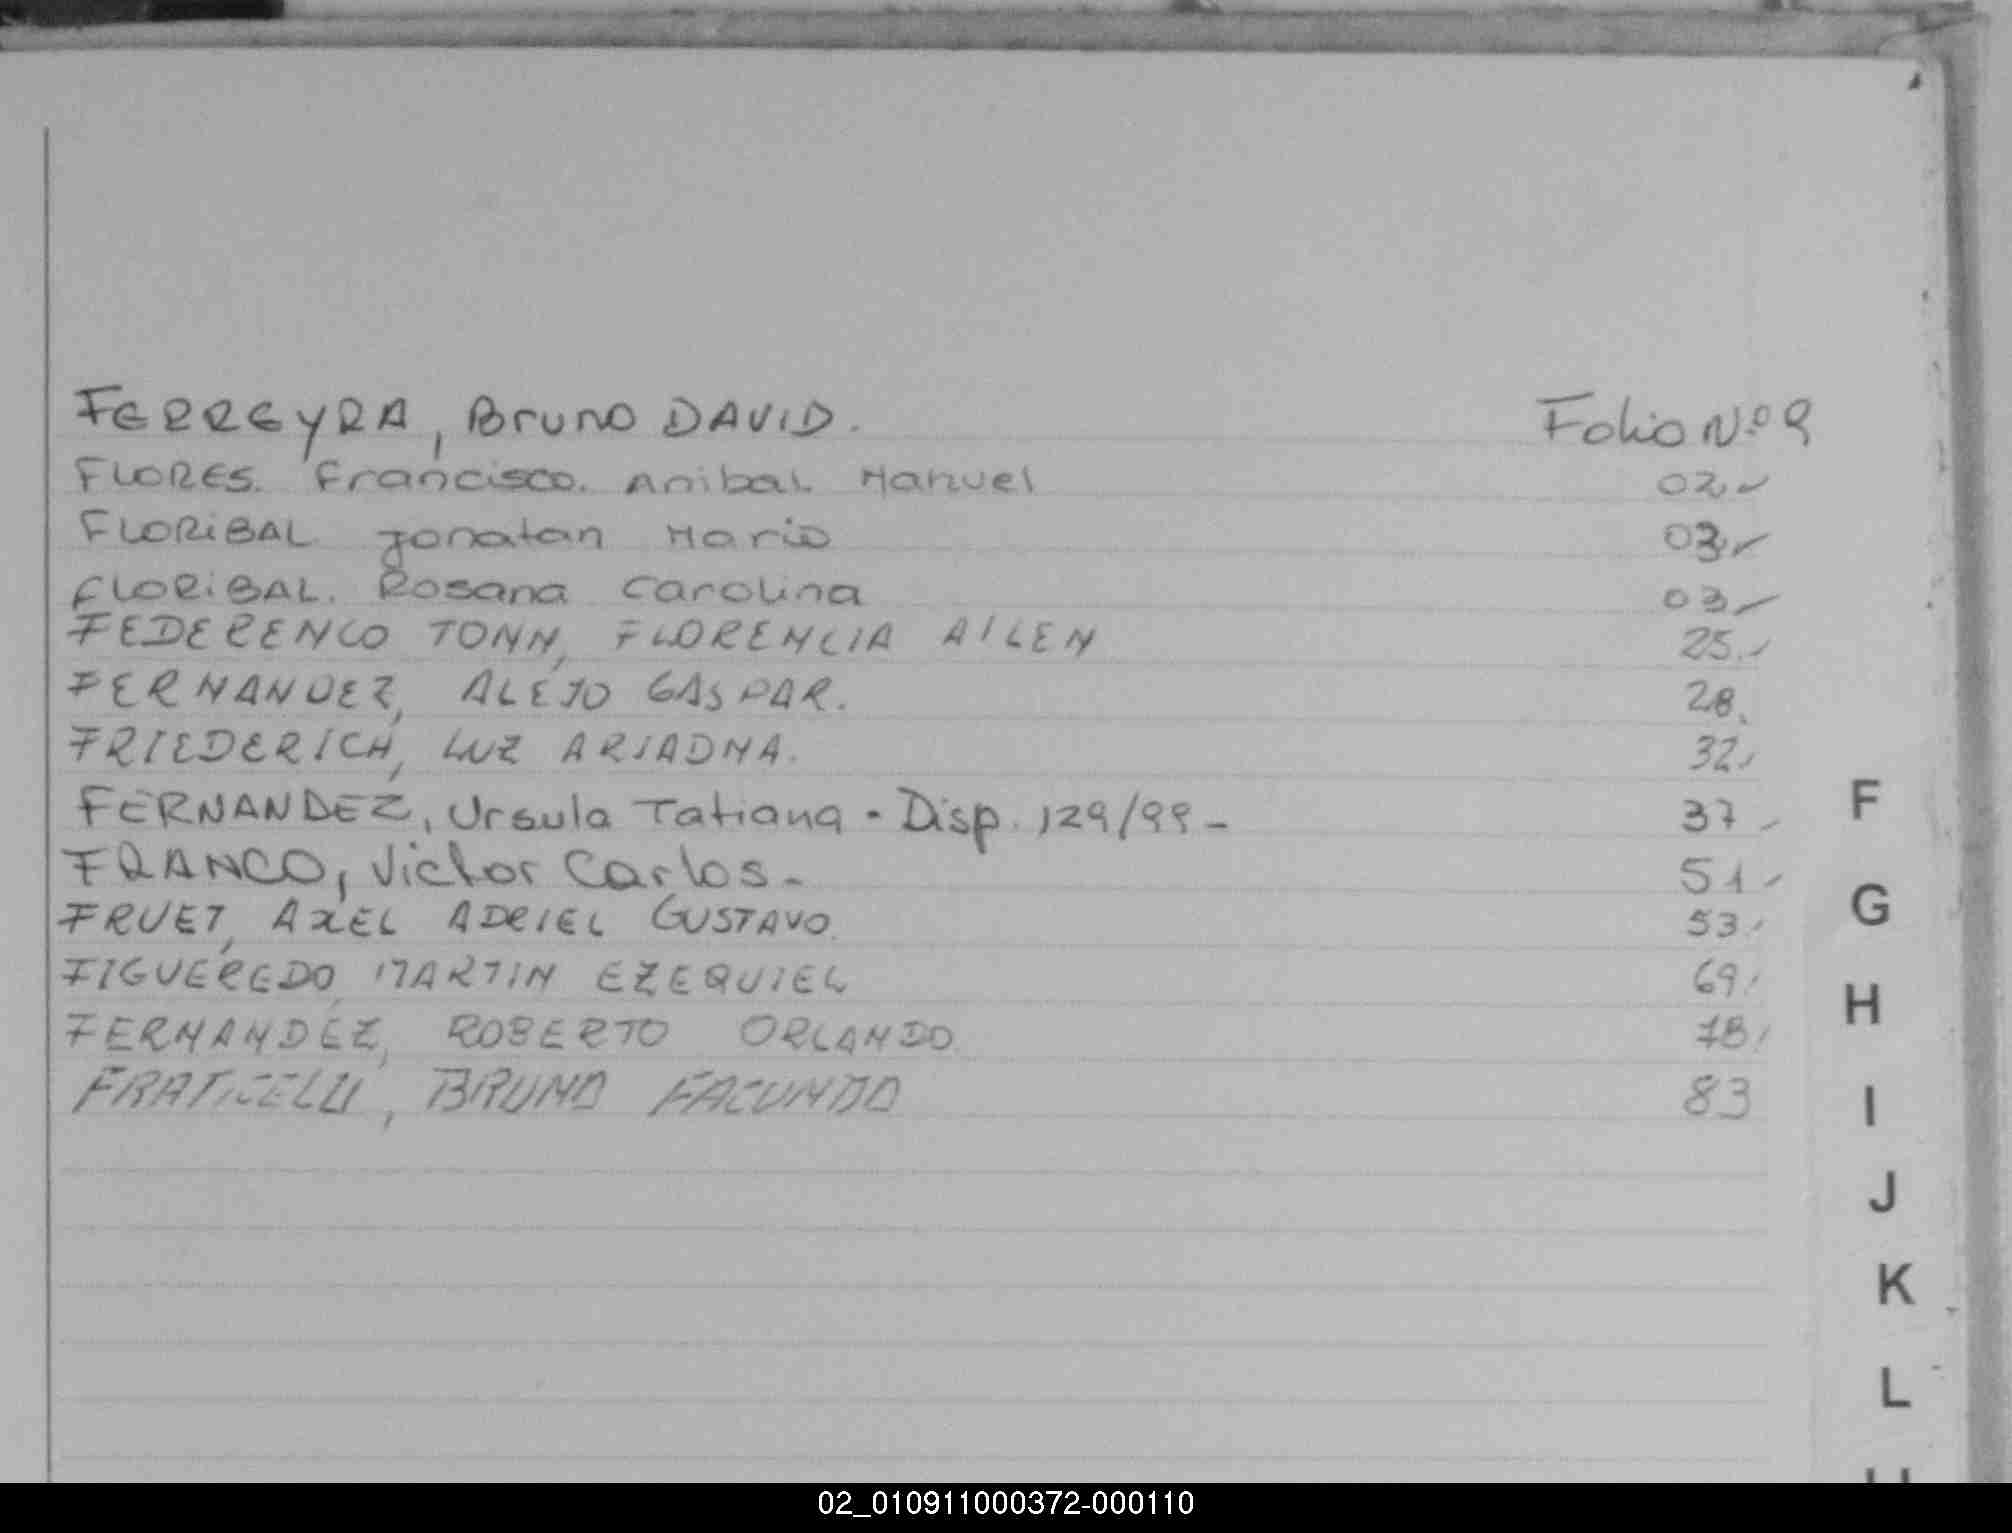 FERREYRA, Bruno DAVID. Folio Nº 9
FLORES. Francisco. Anibal. Manuel 02.-
FLORIBAL Jonatan Mario 03.-
FLORIBAL. Rosana Carolina 03.-
FEDERENCO TONN, FLORENCIA AILEN 25.-
FERNANDEZ, ALEJO GASPAR. 28.
FRIEDERICH, LUZ ARIADNA. 32.
FERNANDEZ, Ursula Tatiana - Disp. 129/99 - 37 -
FRANCO, Victor Carlos - 51 -
FRUET, AXEL ADRIEL GUSTAVO. 53.
FIGUEREDO, MARTIN EZEQUIEL 69.
FERNANDEZ, ROBERTO ORLANDO. 78.
FRATICELLI, BRUNO FACUNDO 83
F
G
H
I
J
K
L
02_010911000372-000110